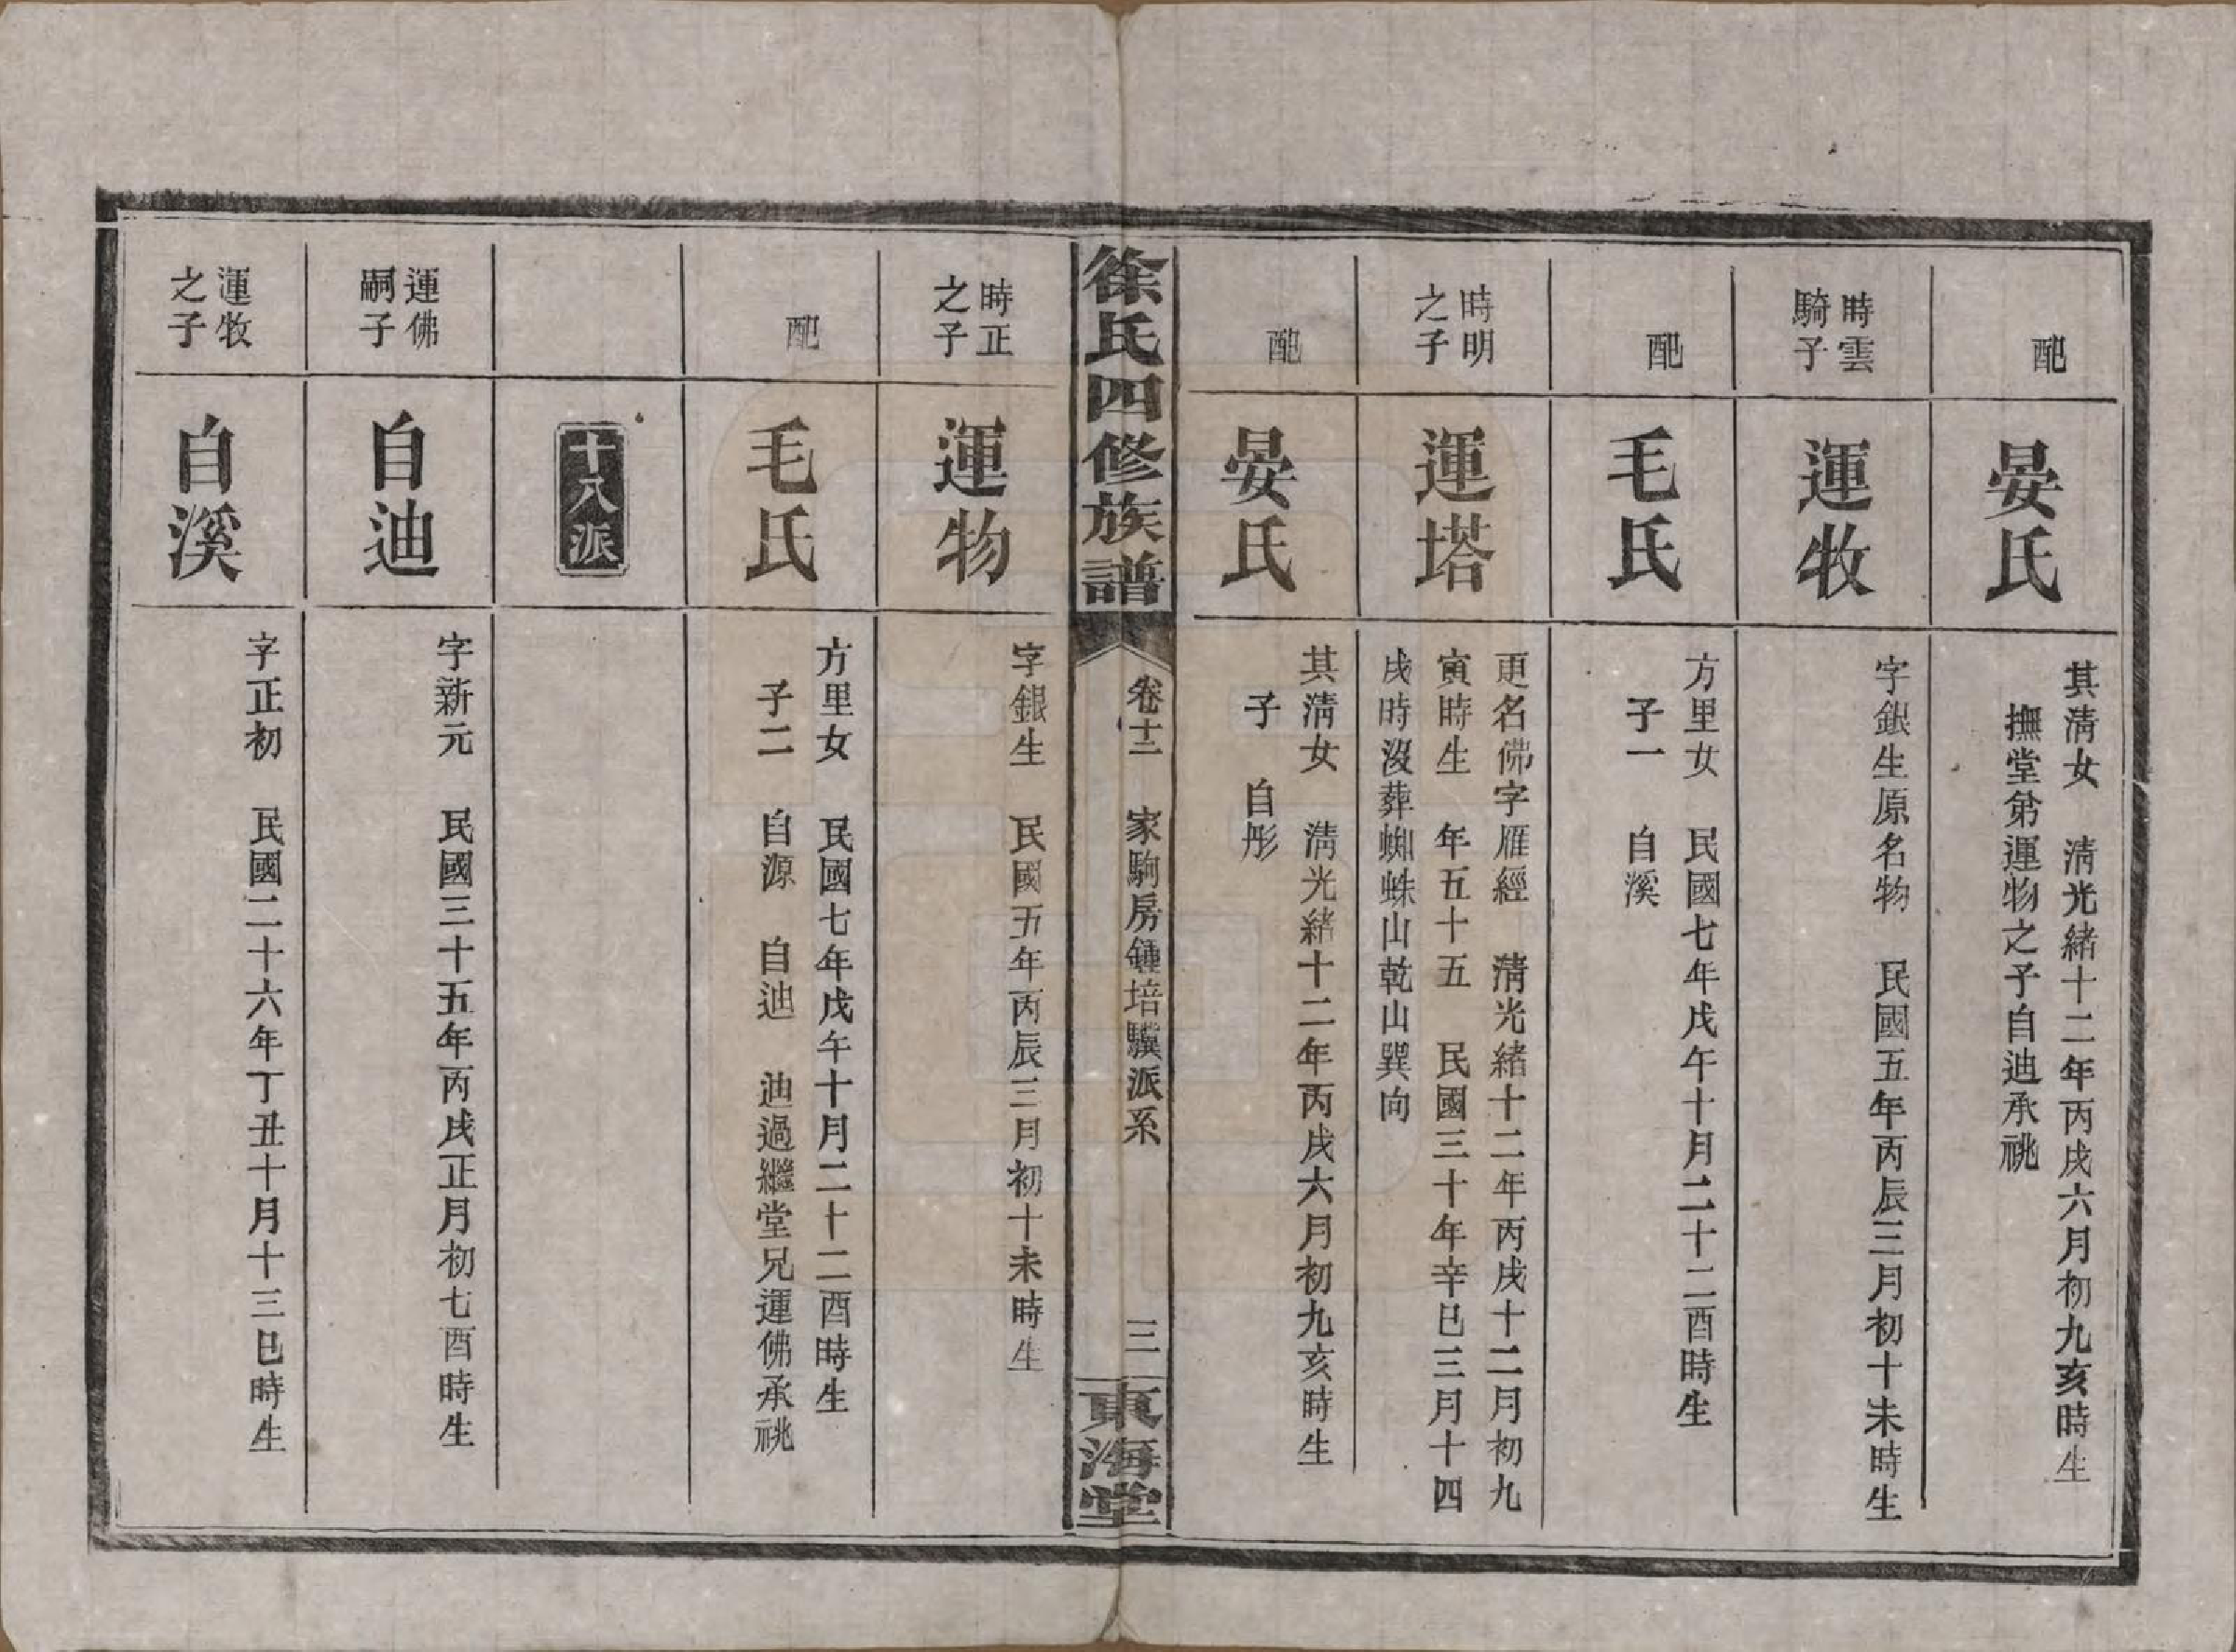 配
晏氏
其淸女　淸光緒十二年丙戌六月初九亥時生
撫堂弟運物之子自迪承祧
時雲
騎子
運牧
字銀生原名物　民國五年丙辰三月初十未時生
配
毛氏
方里女　民國七年戊午十月二十二酉時生
子一　自溪
時明
之子
運塔
更名佛字雁經　淸光緒十二年丙戌十二月初九
寅時生　年五十五　民國三十年辛巳三月十四
戌時沒葬蜘蛛山乾山巽向
配
晏氏
其淸女　淸光緒十二年丙戌六月初九亥時生
子　自彤
徐氏四修族譜
卷十二　家駒房鍾培驥派系　三
東海堂
時正
之子
運物
字銀生　民國五年丙辰三月初十未時生
配
毛氏
方里女　民國七年戊午十月二十二酉時生
子二　自源　自迪　迪過繼堂兄運佛承祧
十八派
運佛
嗣子
自迪
字新元　民國三十五年丙戌正月初七酉時生
運牧
之子
自溪
字正初　民國二十六年丁丑十月十三巳時生